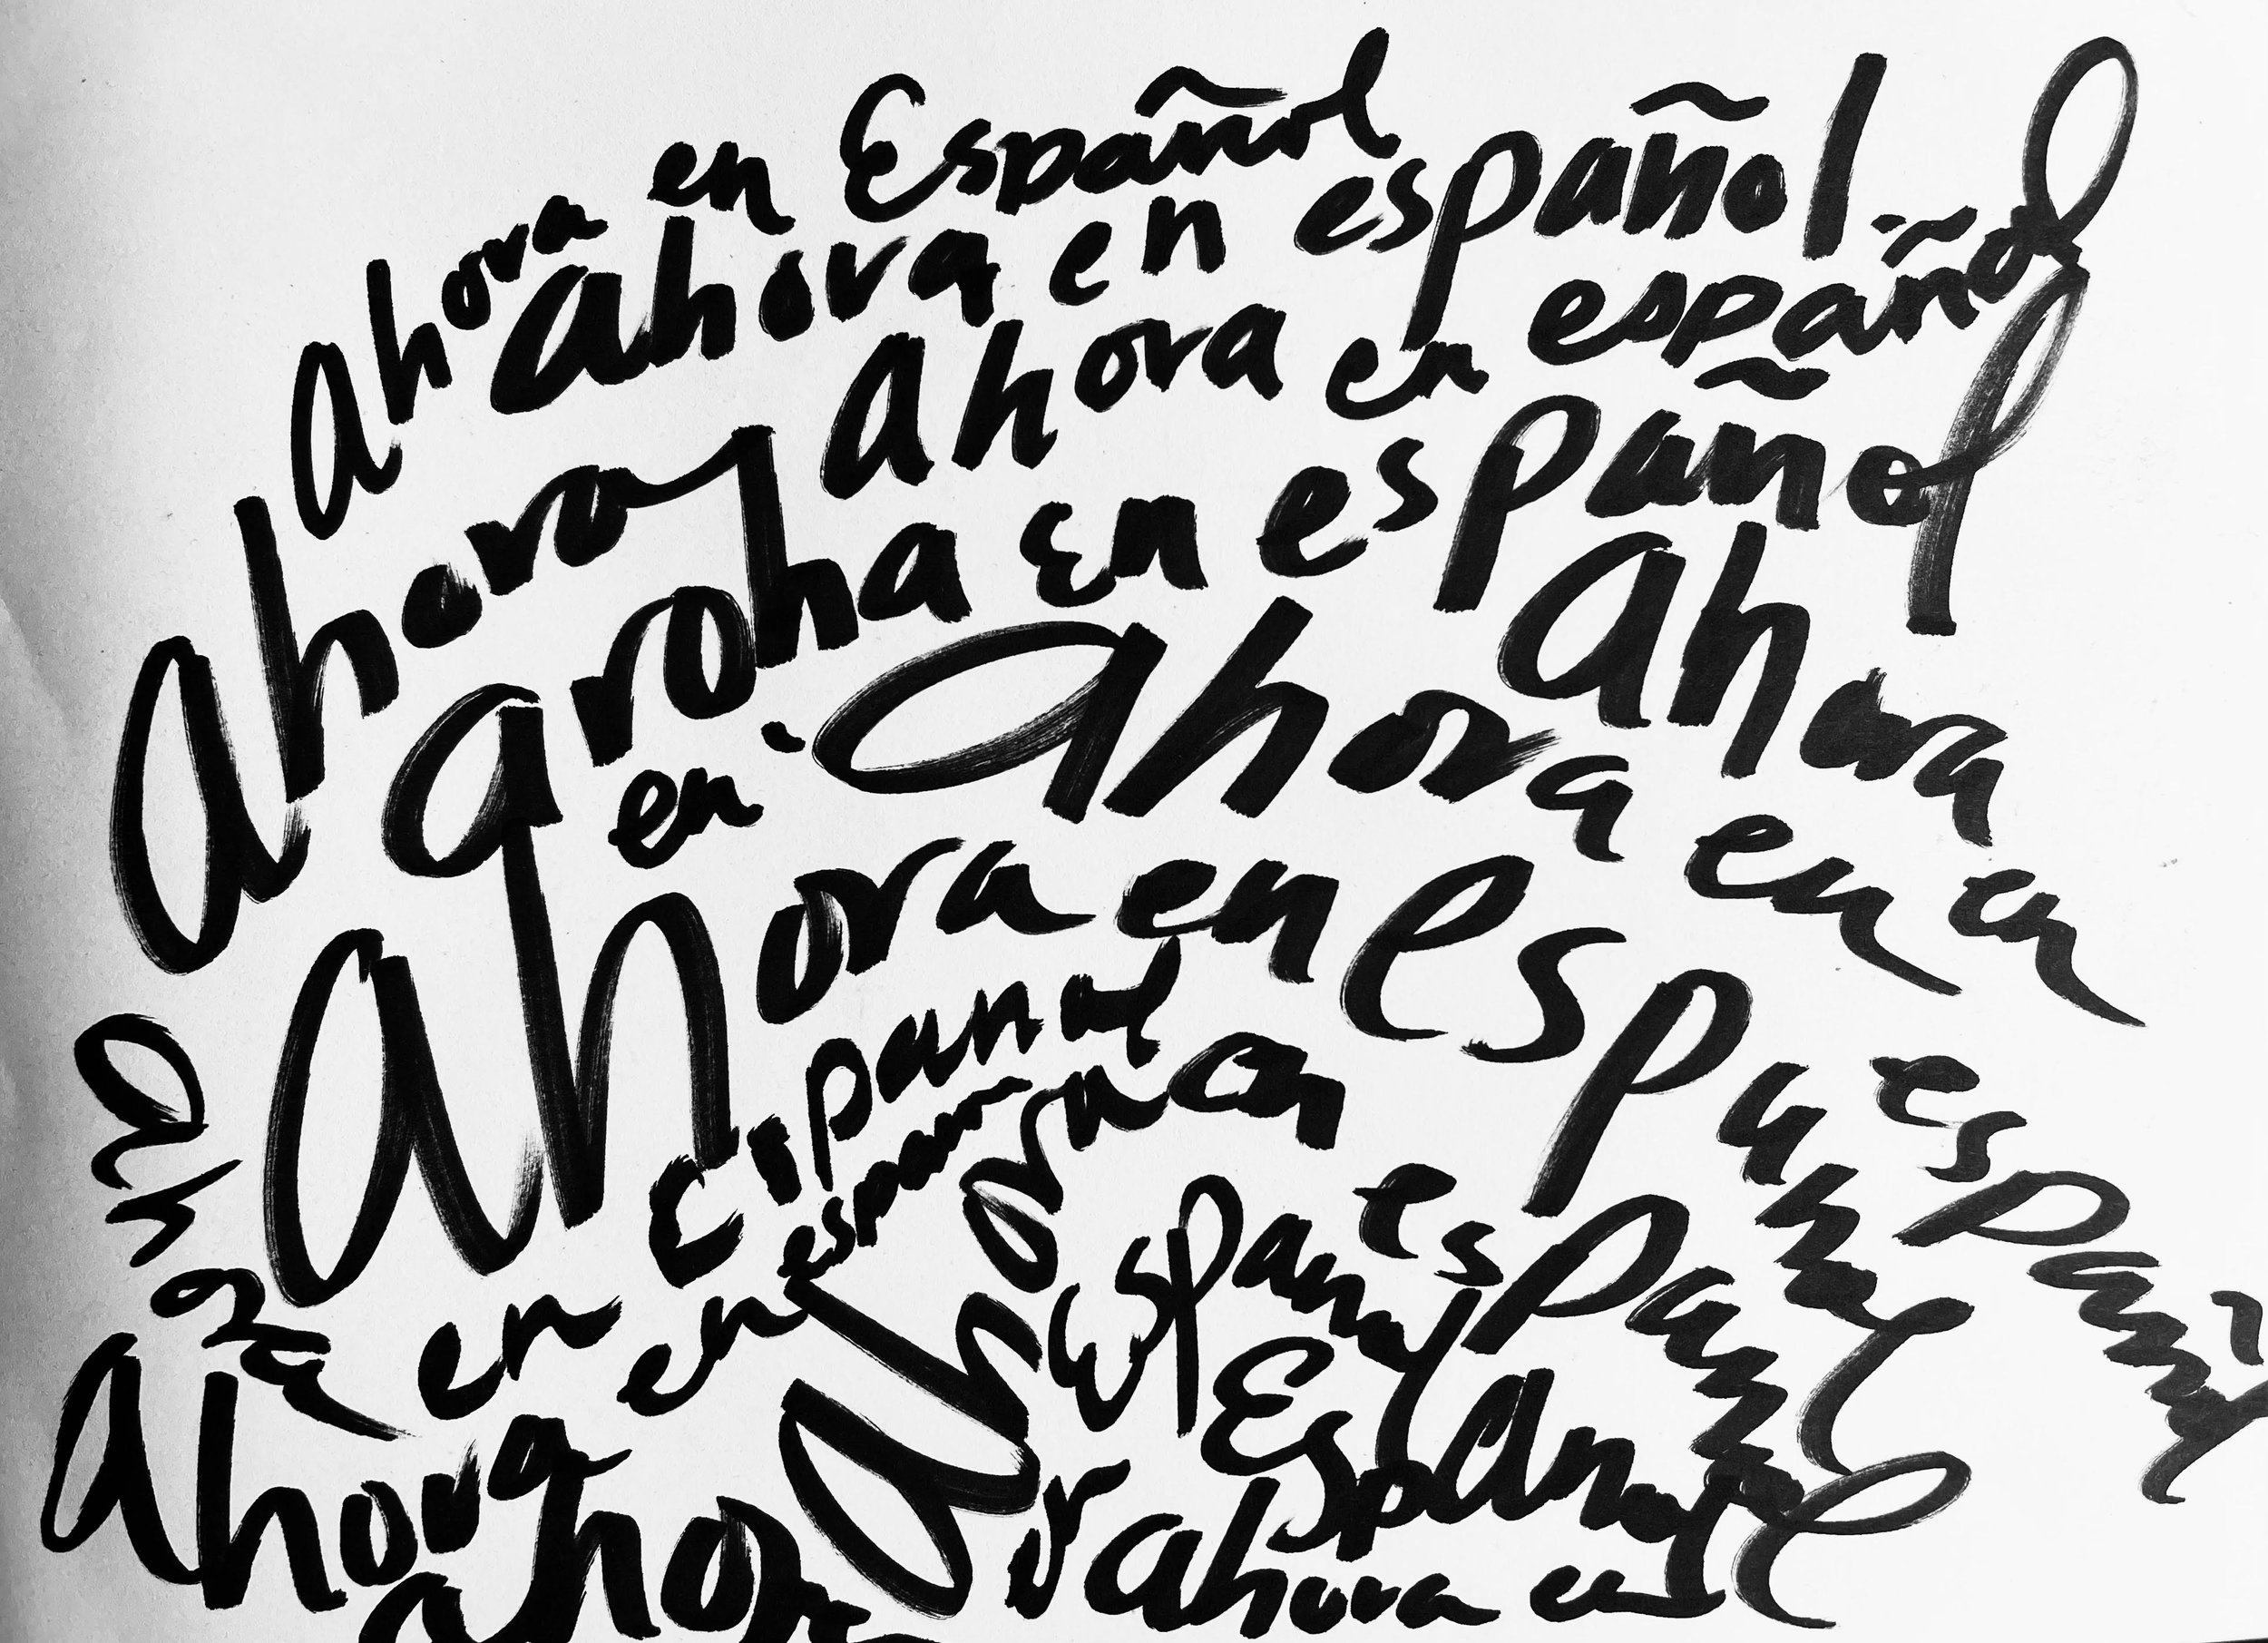 ahora en Español
ahora en español.
ahora en español
ahora
aroha en español
ahora en
en · ahora en
ahora en español
español
ahora en Español
en español
ahora en
español
español
ahora
ahora
Español
ahora en